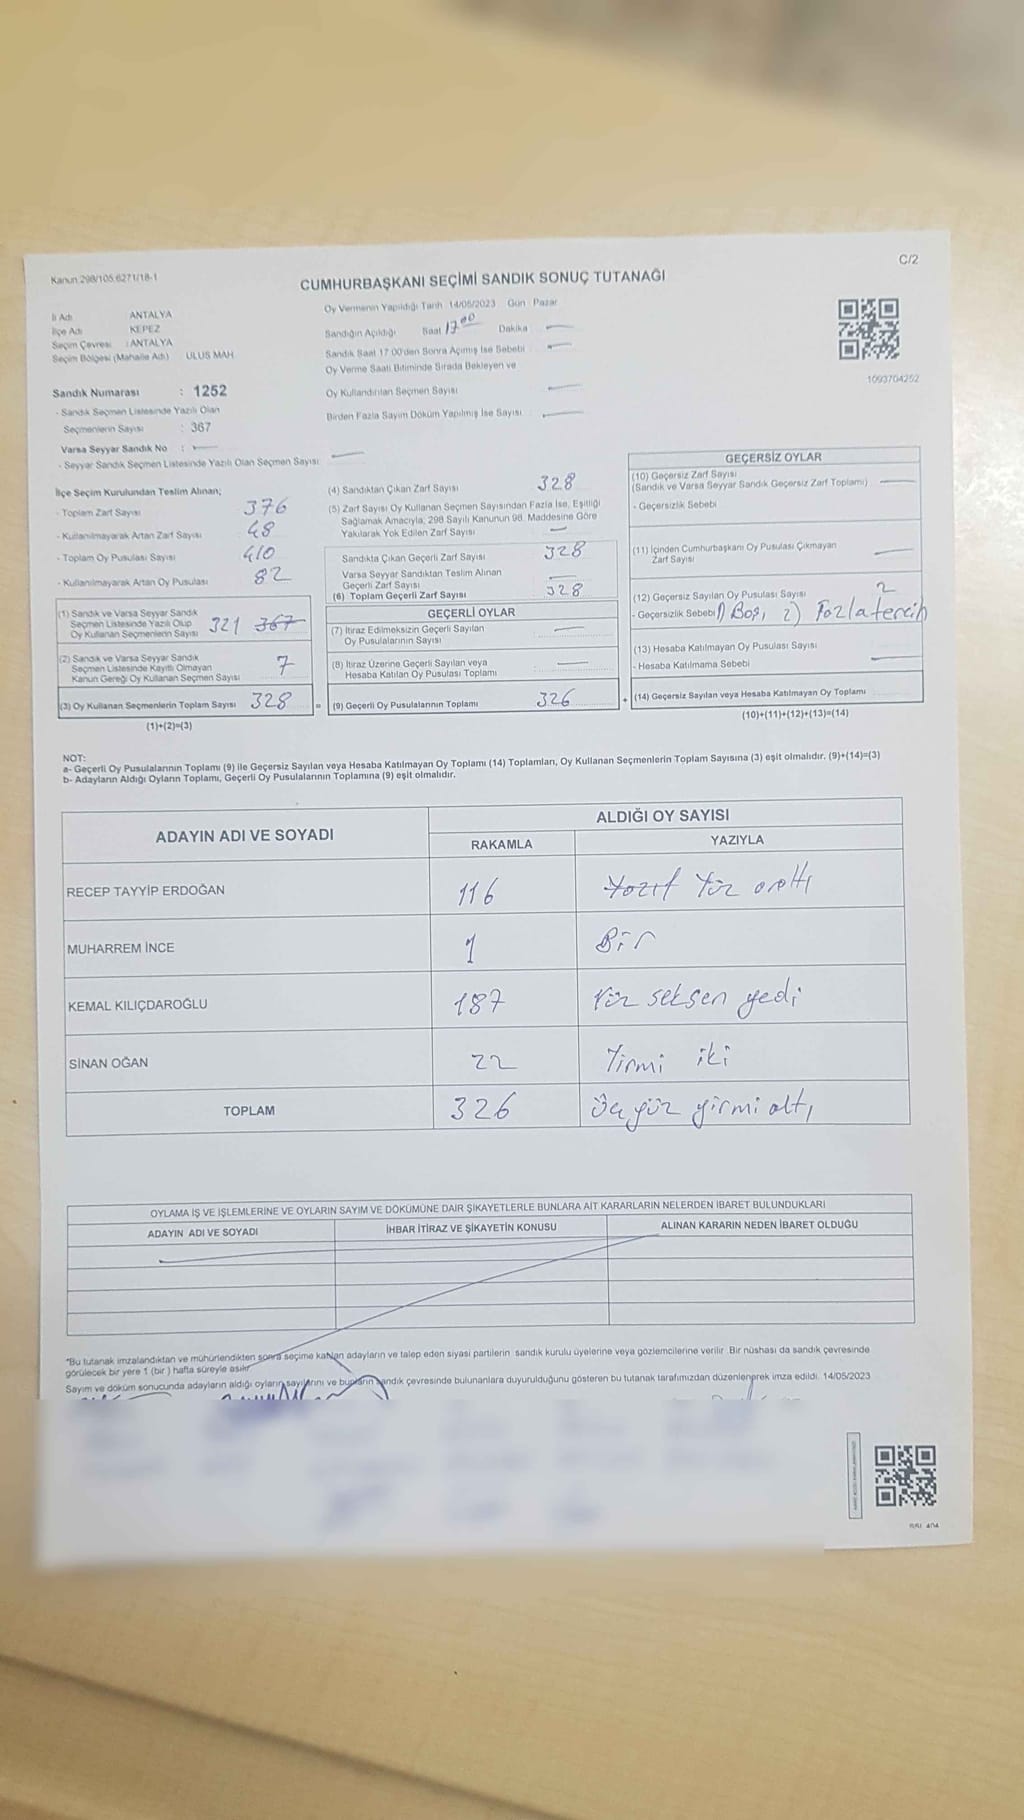 Kanun 298/105.6271/18-1
C/2
CUMHURBAŞKANI SEÇİMİ SANDIK SONUÇ TUTANAĞI
İl Adı ANTALYA
İlçe Adı KEPEZ
Seçim Çevresi : ANTALYA
Seçim Bölgesi (Mahalle Adı) ULUS MAH.
Sandık Numarası : 1252
- Sandık Seçmen Listesinde Yazılı Olan
Seçmenlerin Sayısı : 367
Varsa Seyyar Sandık No :
- Seyyar Sandık Seçmen Listesinde Yazılı Olan Seçmen Sayısı
Oy Vermenin Yapıldığı Tarih 14/05/2023 Gün Pazar
Sandığın Açıldığı Saat 17 00 Dakika
Sandık Saat 17 00'den Sonra Açılmış İse Sebebi
Oy Verme Saati Bitiminde Sırada Bekleyen ve
Oy Kullandırılan Seçmen Sayısı
Birden Fazla Sayım Döküm Yapılmış İse Sayısı
1093704252
İlçe Seçim Kurulundan Teslim Alınan;
- Toplam Zarf Sayısı 376
- Kullanılmayarak Artan Zarf Sayısı 48
- Toplam Oy Pusulası Sayısı 410
- Kullanılmayarak Artan Oy Pusulası 82
(1) Sandık ve Varsa Seyyar Sandık
Seçmen Listesinde Yazılı Olup
Oy Kullanan Seçmenlerin Sayısı 321 367
(2) Sandık ve Varsa Seyyar Sandık
Seçmen Listesinde Kayıtlı Olmayan
Kanun Gereği Oy Kullanan Seçmen Sayısı 7
(3) Oy Kullanan Seçmenlerin Toplam Sayısı 328 =
(1)+(2)=(3)
(4) Sandıktan Çıkan Zarf Sayısı 328
(5) Zarf Sayısı Oy Kullanan Seçmen Sayısından Fazla İse, Eşitliği
Sağlamak Amacıyla, 298 Sayılı Kanunun 98. Maddesine Göre
Yakılarak Yok Edilen Zarf Sayısı
Sandıkta Çıkan Geçerli Zarf Sayısı 328
Varsa Seyyar Sandıktan Teslim Alınan
Geçerli Zarf Sayısı
(6) Toplam Geçerli Zarf Sayısı 328
GEÇERLİ OYLAR
(7) İtiraz Edilmeksizin Geçerli Sayılan
Oy Pusulalarının Sayısı
(8) İtiraz Üzerine Geçerli Sayılan veya
Hesaba Katılan Oy Pusulası Toplamı
(9) Geçerli Oy Pusulalarının Toplamı 326 +
GEÇERSİZ OYLAR
(10) Geçersiz Zarf Sayısı
(Sandık ve Varsa Seyyar Sandık Geçersiz Zarf Toplamı)
- Geçersizlik Sebebi
(11) İçinden Cumhurbaşkanı Oy Pusulası Çıkmayan
Zarf Sayısı
(12) Geçersiz Sayılan Oy Pusulası Sayısı 2
- Geçersizlik Sebebi 1) Boş, 2) Fazla tercih
(13) Hesaba Katılmayan Oy Pusulası Sayısı
- Hesaba Katılmama Sebebi
(14) Geçersiz Sayılan veya Hesaba Katılmayan Oy Toplamı
(10)+(11)+(12)+(13)=(14)
NOT:
a- Geçerli Oy Pusulalarının Toplamı (9) ile Geçersiz Sayılan veya Hesaba Katılmayan Oy Toplamı (14) Toplamları, Oy Kullanan Seçmenlerin Toplam Sayısına (3) eşit olmalıdır. (9)+(14)=(3)
b- Adayların Aldığı Oyların Toplamı, Geçerli Oy Pusulalarının Toplamına (9) eşit olmalıdır.
ADAYIN ADI VE SOYADI
ALDIĞI OY SAYISI
RAKAMLA YAZIYLA
RECEP TAYYİP ERDOĞAN 116 Yüz onaltı
MUHARREM İNCE 1 Bir
KEMAL KILIÇDAROĞLU 187 Yüz seksen yedi
SİNAN OĞAN 22 Yirmi iki
TOPLAM 326 Üç yüz yirmi altı
OYLAMA İŞ VE İŞLEMLERİNE VE OYLARIN SAYIM VE DÖKÜMÜNE DAİR ŞİKAYETLERLE BUNLARA AİT KARARLARIN NELERDEN İBARET BULUNDUKLARI
ADAYIN ADI VE SOYADI İHBAR İTİRAZ VE ŞİKAYETİN KONUSU ALINAN KARARIN NEDEN İBARET OLDUĞU
*Bu tutanak imzalandıktan ve mühürlendikten sonra seçime katılan adayların ve talep eden siyasi partilerin sandık kurulu üyelerine veya gözlemcilerine verilir. Bir nüshası da sandık çevresinde
görülecek bir yere 1 (bir) hafta süreyle asılır
Sayım ve döküm sonucunda adayların aldığı oyların sayılarını ve bunların sandık çevresinde bulunanlara duyurulduğunu gösteren bu tutanak tarafımızdan düzenlenerek imza edildi. 14/05/2023